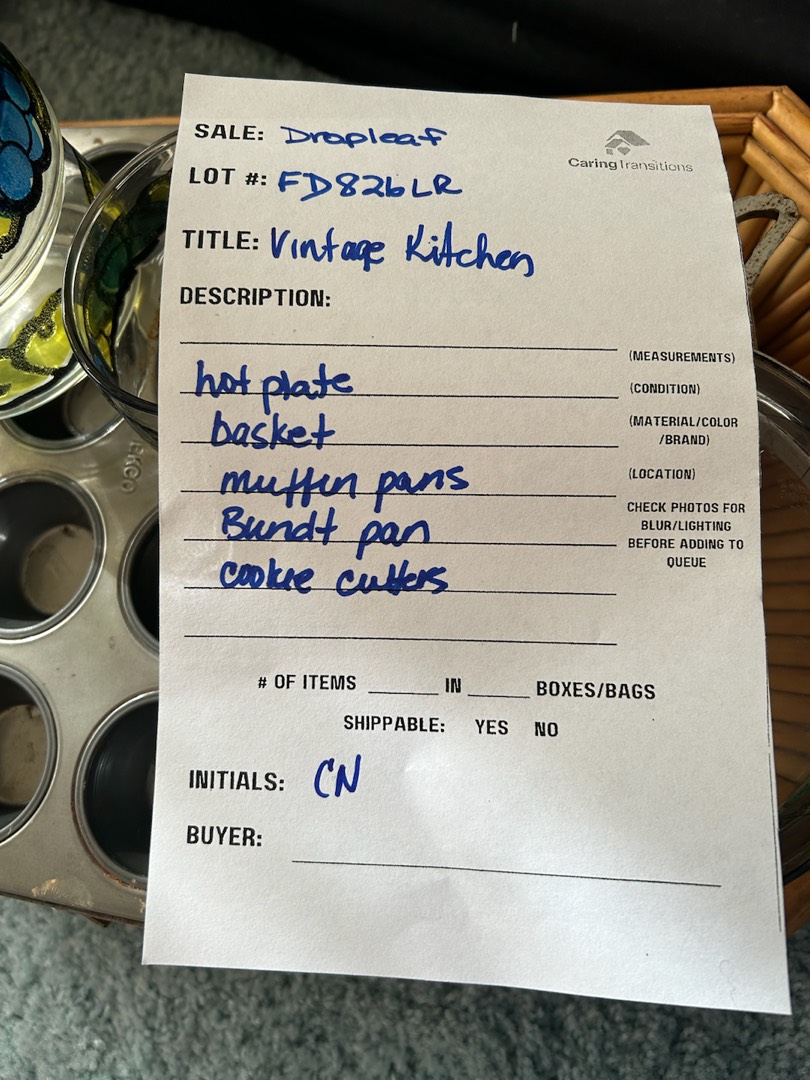 SALE: Dropleaf
CaringTransitions
LOT #: FD826LR
TITLE: Vintage Kitchen
DESCRIPTION:
(MEASUREMENTS)
hot plate
(CONDITION)
basket
(MATERIAL/COLOR
/BRAND)
muffin pans
(LOCATION)
Bundt pan
CHECK PHOTOS FOR
BLUR/LIGHTING
BEFORE ADDING TO
QUEUE
cookie cutters
# OF ITEMS ______ IN ______ BOXES/BAGS
SHIPPABLE: YES NO
INITIALS: CN
BUYER:
EKCO